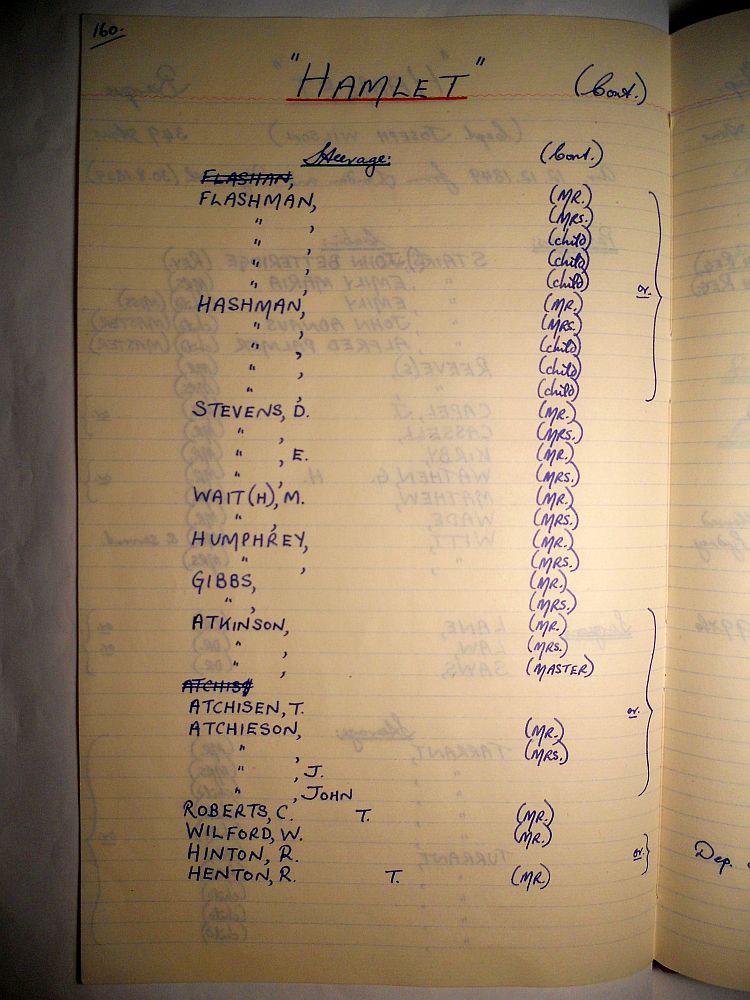 160.
"HAMLET" (Cont.)
Steerage: (Cont.)
FLASHAN,
FLASHMAN, (MR.)
" , (MRS.)
" , (child)
" , (child)
" , (child)
or.
HASHMAN, (MR.)
" , (MRS.)
" , (child)
" , (child)
" , (child)
STEVENS, D. (MR.)
" , (MRS.)
" , E. (MR.)
" , (MRS.)
WAIT(H), M. (MR.)
" , (MRS.)
HUMPHREY, (MR.)
" , (MRS.)
GIBBS, (MR.)
" , (MRS.)
ATKINSON, (MR.)
" , (MRS.)
" , (MASTER)
ATCHIS
ATCHISEN, T. or.
ATCHIESON, (MR.)
" , (MRS.)
" , J.
" , JOHN
ROBERTS, C. T. (MR.)
WILFORD, W. (MR.)
HINTON, R. or.
HENTON, R. T. (MR)
Dep.